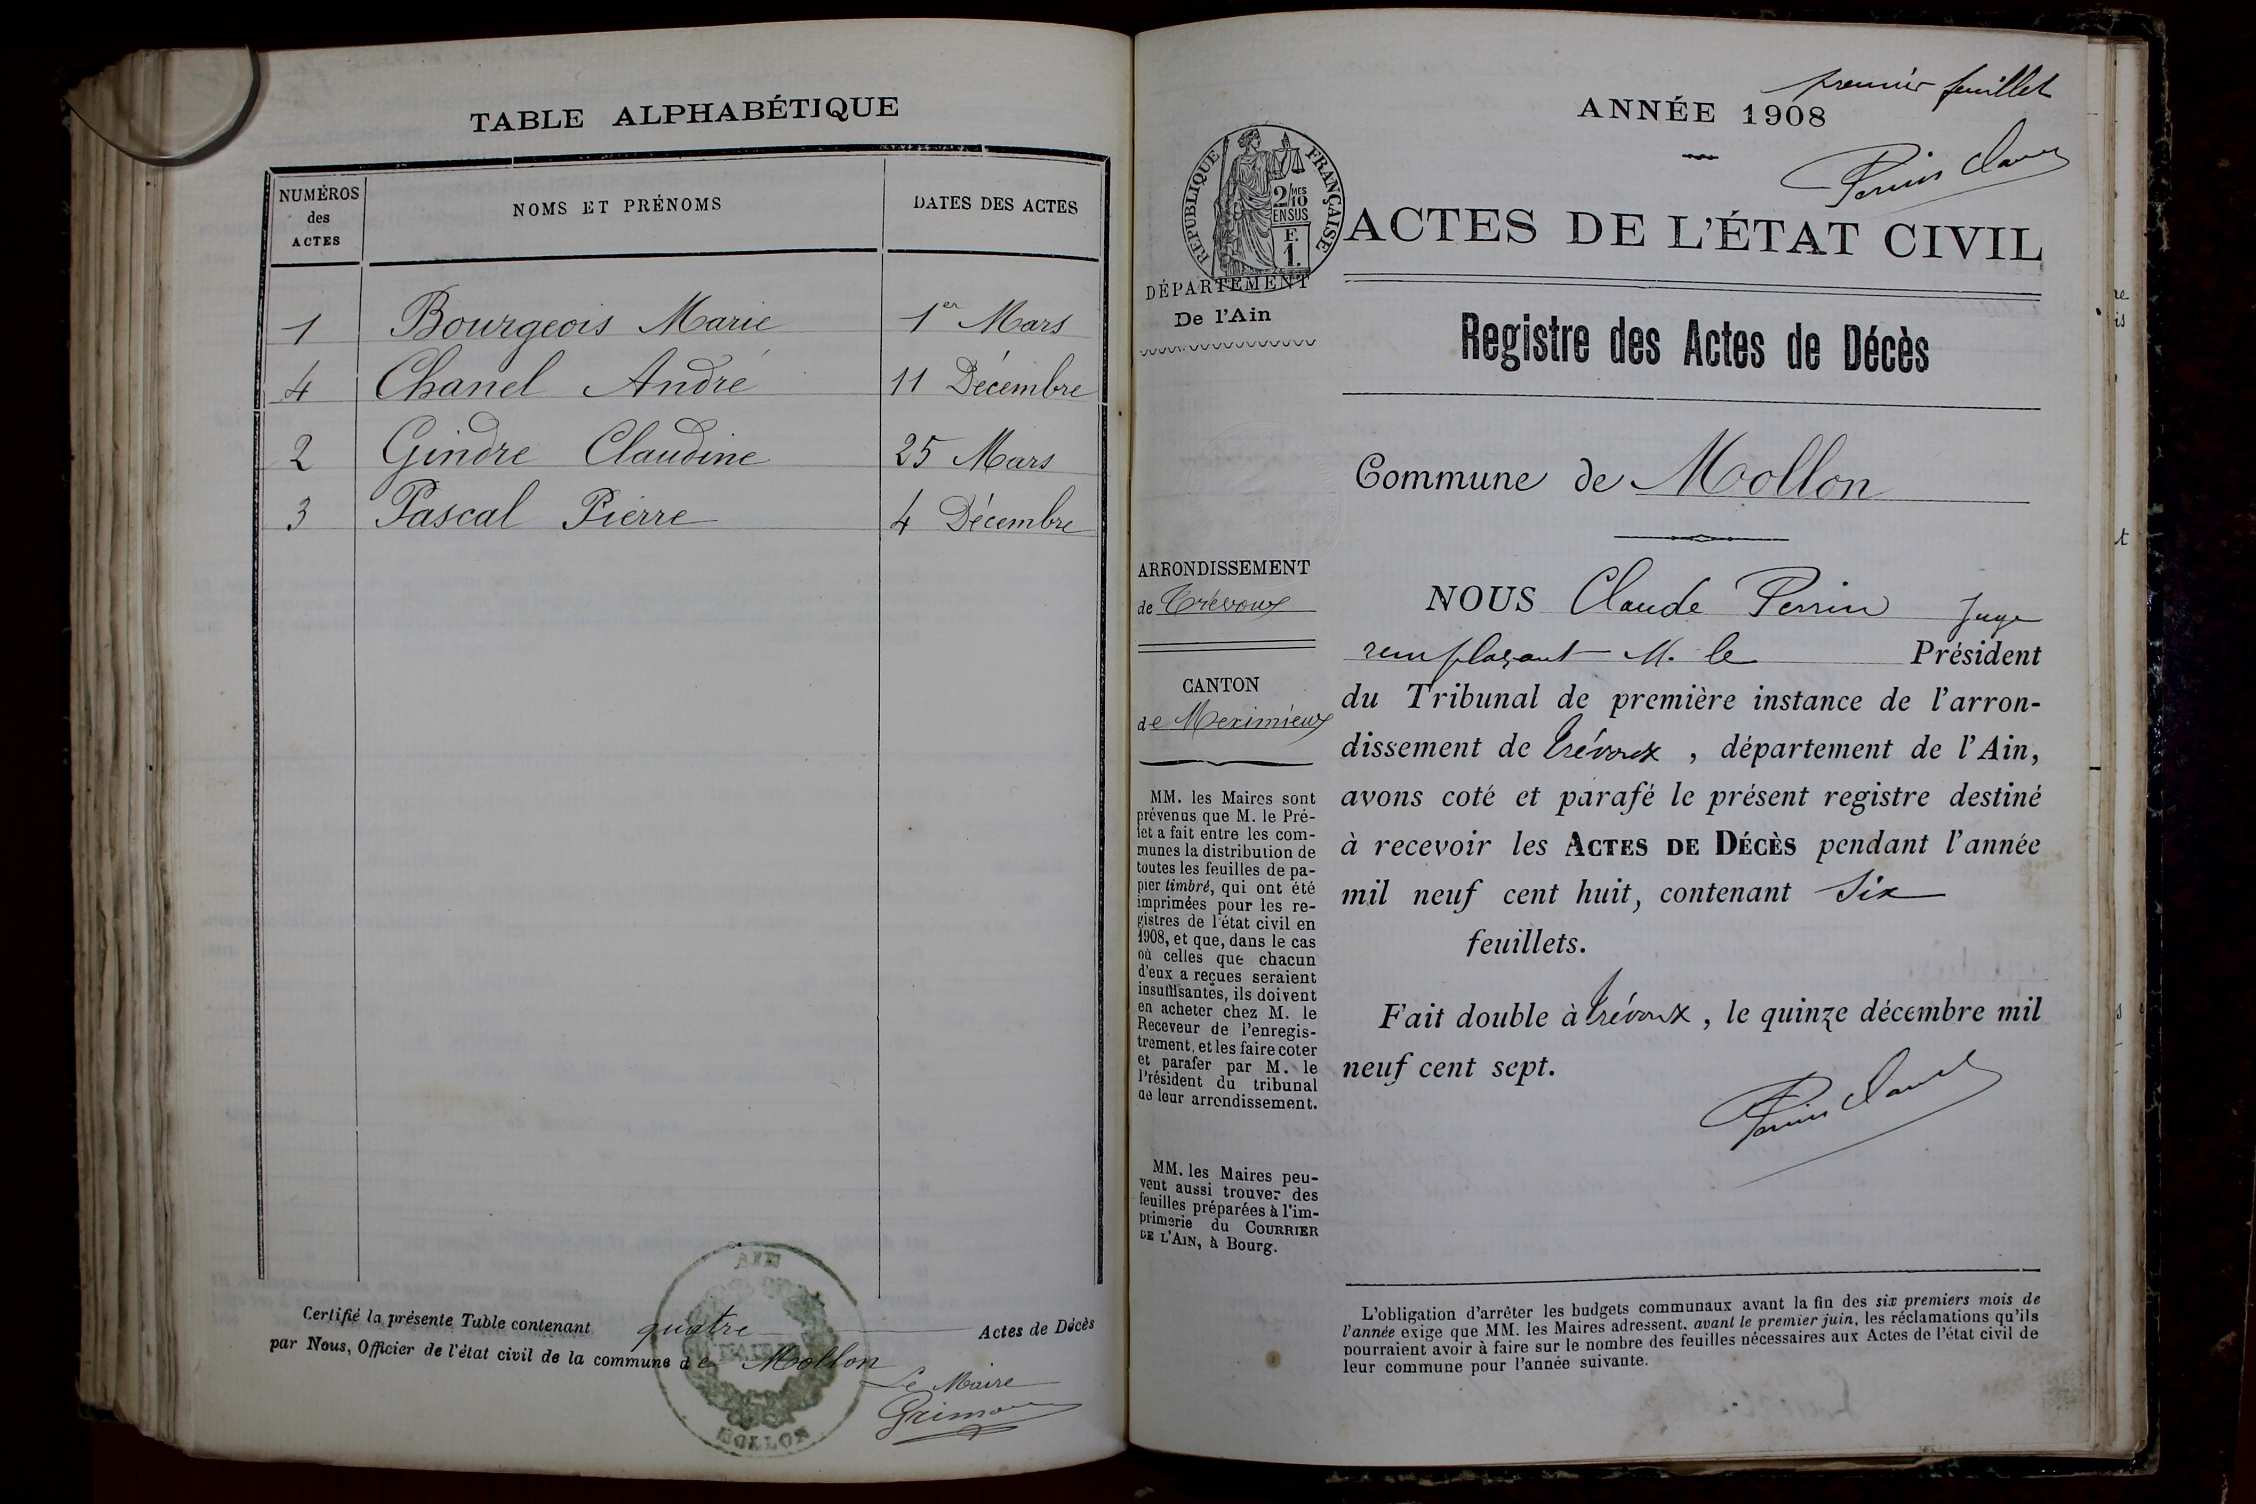 TABLE ALPHABÉTIQUE
NUMÉROS des ACTES
NOMS ET PRÉNOMS
DATES DES ACTES
1 Bourgeois Marie 1er Mars
4 Chanel André 11 Décembre
2 Gindre Claudine 25 Mars
3 Pascal Pierre 4 Décembre
Certifié la présente Table contenant quatre Actes de Décès
par Nous, Officier de l'état civil de la commune de Mollon
Le Maire
AIN
MOLLON
premier feuillet
ANNÉE 1908
RÉPUBLIQUE FRANÇAISE
2/10 MES
EN SUS
F.
1.
ACTES DE L'ÉTAT CIVIL
DÉPARTEMENT
De l'Ain
Registre des Actes de Décès
Commune de Mollon
ARRONDISSEMENT
de Trévoux
CANTON
de Meximieux
MM. les Maires sont
prévenus que M. le Pré-
fet a fait entre les com-
munes la distribution de
toutes les feuilles de pa-
pier timbré, qui ont été
imprimées pour les re-
gistres de l'état civil en
1908, et que, dans le cas
où celles que chacun
d'eux a reçues seraient
insuffisantes, ils doivent
en acheter chez M. le
Receveur de l'enregis-
trement, et les faire coter
et parafer par M. le
Président du tribunal
de leur arrondissement.
MM. les Maires peu-
vent aussi trouver des
feuilles préparées à l'im-
primerie du COURRIER
DE L'AIN, à Bourg.
NOUS Claude Perrin Juge
remplaçant M. le Président
du Tribunal de première instance de l'arron-
dissement de Trévoux, département de l'Ain,
avons coté et parafé le présent registre destiné
à recevoir les ACTES DE DÉCÈS pendant l'année
mil neuf cent huit, contenant Six
feuillets.
Fait double à Trévoux, le quinze décembre mil
neuf cent sept.
L'obligation d'arrêter les budgets communaux avant la fin des six premiers mois de
l'année exige que MM. les Maires adressent, avant le premier juin, les réclamations qu'ils
pourraient avoir à faire sur le nombre des feuilles nécessaires aux Actes de l'état civil de
leur commune pour l'année suivante.